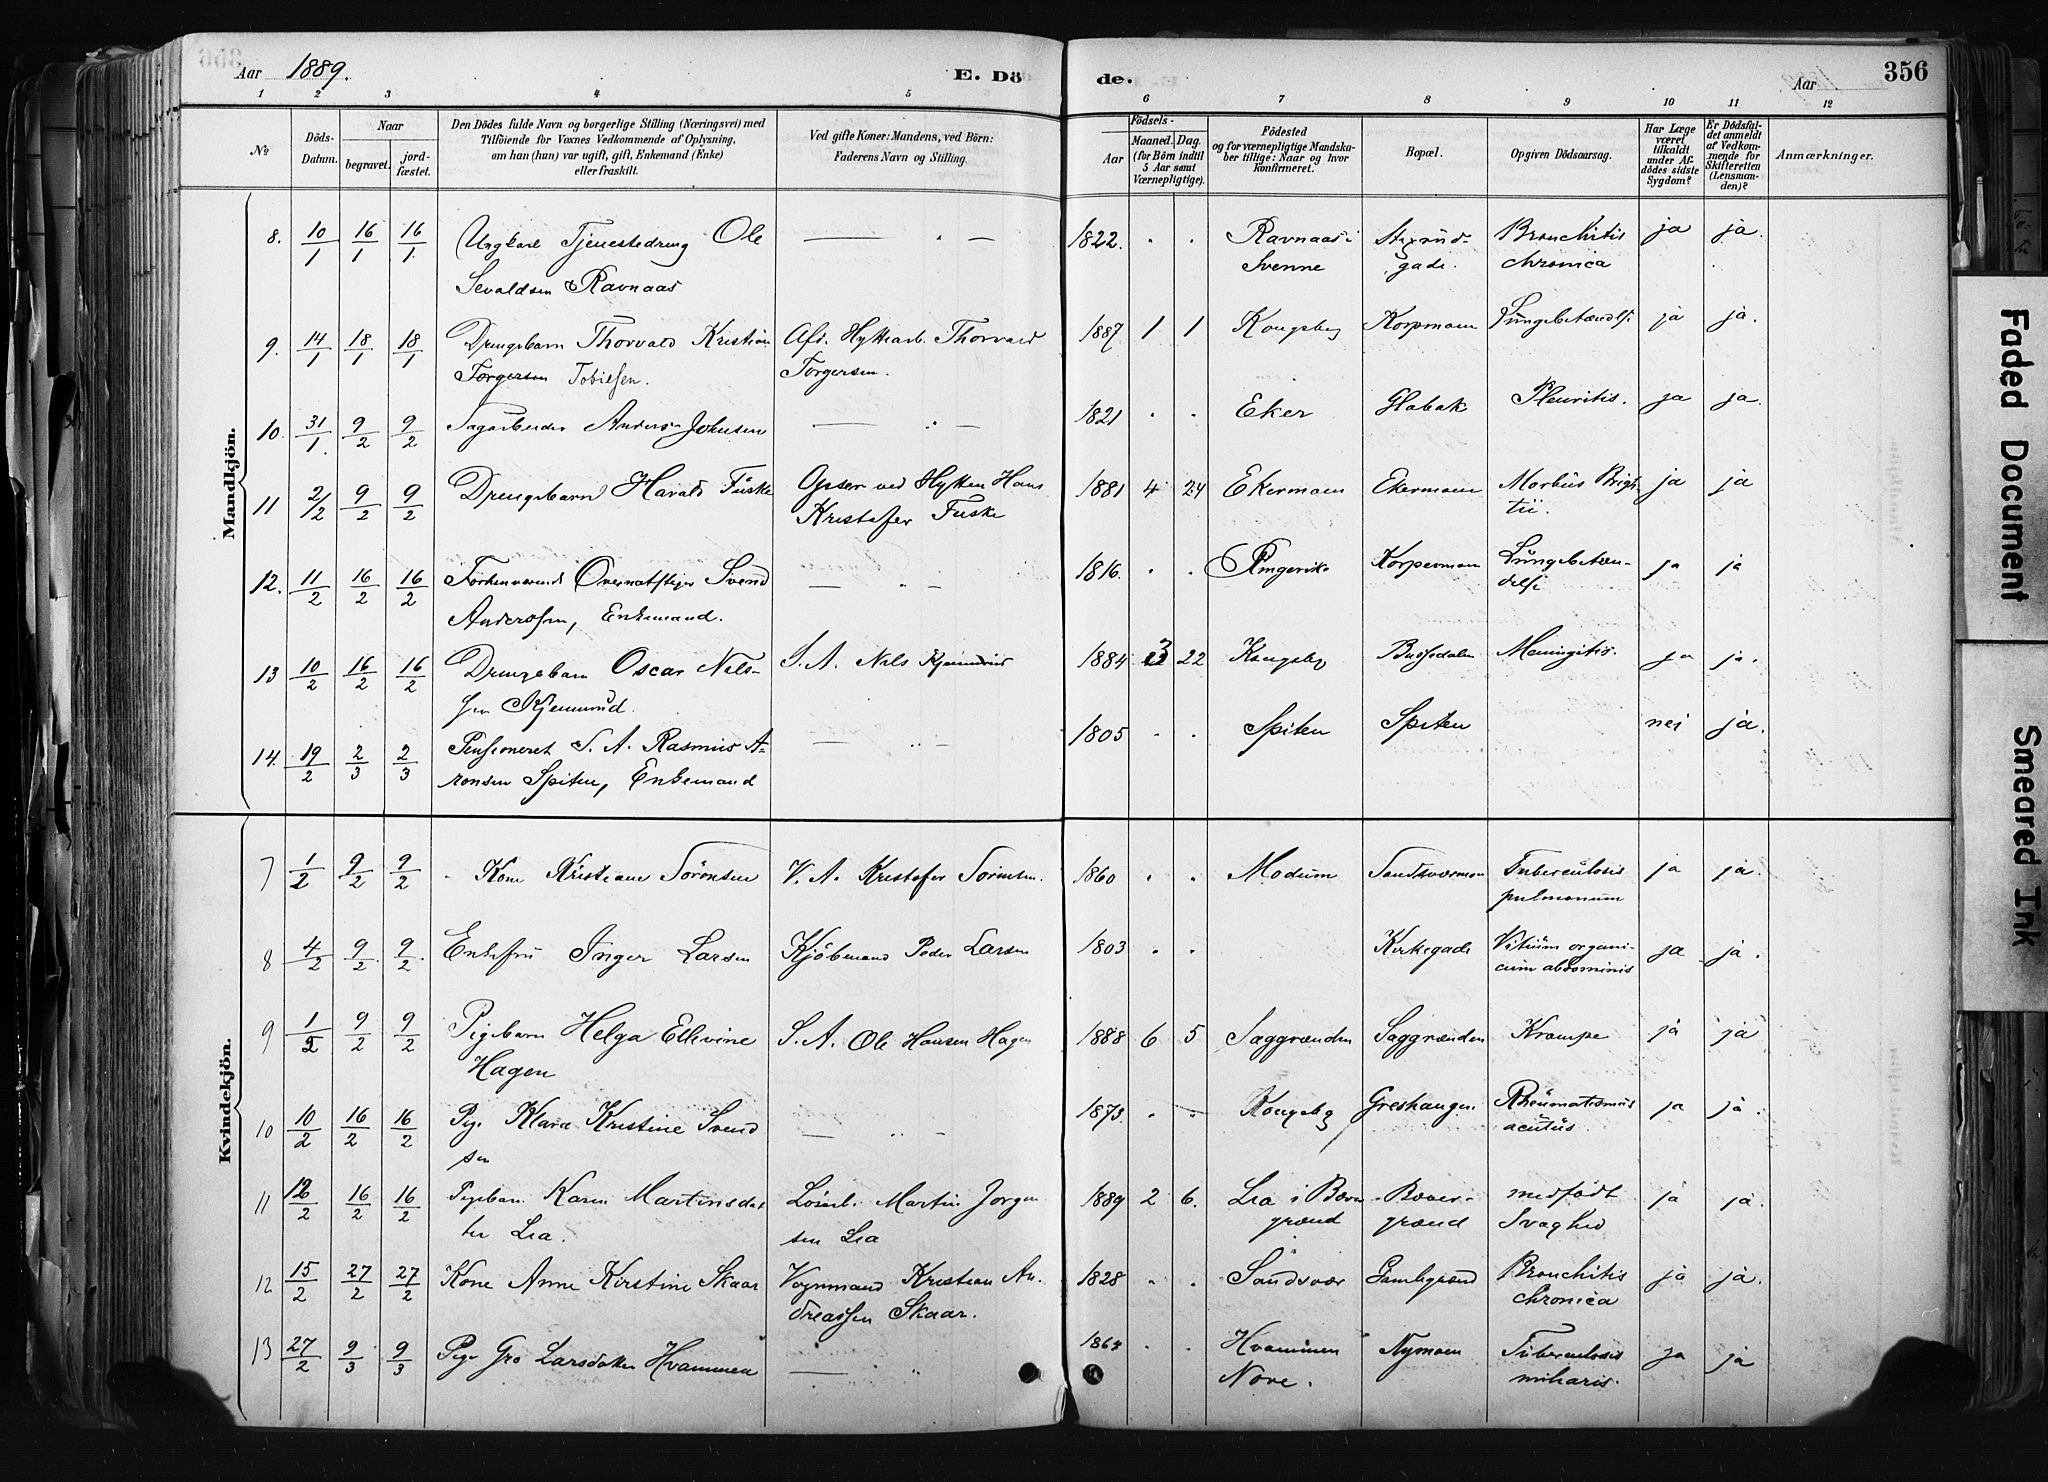 Aar 1889.
E. Döde.
Aar
356
1 2 3 4 5 6 7 8 9 10 11 12
No
Döds-Datum.
Naar
begravet.
jordfæstet.
Den Dödes fulde Navn og borgerlige Stilling (Næringsvei) med
Tilföiende for Voxnes Vedkommende af Oplysning,
om han (hun) var ugift, gift, Enkemand (Enke)
eller fraskilt.
Ved gifte Koner: Mandens, ved Börn:
Faderens Navn og Stilling.
Födsels-
Aar
Maaned. Dag.
(for Börn indtil
5 Aar samt
Værnepligtige).
Födested
og for værnepligtige Mandska-
ber tillige: Naar og hvor
konfirmeret.
Bopæl.
Opgiven Dödsaarsag.
Har Læge
været
tilkaldt
under Af-
dödes sidste
Sygdom?
Er Dödsfal-
det anmeldt
af Vedkom-
mende for
Skifteretten
(Lensman-
den)?
Anmærkninger.
Mandkjön.
8. 10/1 16/1 16/1 Ungkarl Tjenestedreng Ole — " — 1822. " " Ravnaas i Bronchitis ja ja.
Sevaldsen Ravnaas Svenne gade. chronica
9. 14/1 18/1 18/1 Drengebarn Thorvald Kristian Afd. Hyttearb. Thorvald 1887 1 1 Kongsberg Korpmoen Lungebetændelse ja ja.
Torgersen Tobiesen. Torgersen.
10. 31/1 9/2 9/2 Sagarbeider Anders Johnsen — " — 1821 " " Eker Glabak Pleuritis. ja ja.
11 2/2 9/2 9/2 Drengebarn Harald Fuske Opser ved Hytten Hans 1881 4 24 Ekermoen Ekermoen Morbus Brigh- ja ja
Kristofer Fuske tii.
12. 11/2 16/2 16/2 Forhenværende Overnatstiger Svend — " — 1816. " " Ringerike Korpemoen Lungebetæn- ja ja
Anderssen, Enkemand. delse
13 10/2 16/2 16/2 Drengebarn Oscar Nils- S. A. Nils Kjemrud 1884 3 22 Kongsbg Bussedalen Meningitis. ja ja.
sen Kjemrud.
14. 19/2 2/3 2/3 Pensioneret S. A. Rasmus A- — " — 1805 " " Spiten Spiten nei ja.
ronsen Spiten, Enkemand
Kvindekjön.
7 1/2 9/2 9/2 Kone Kristiane Sörensen V. A. Kristofer Sörensen. 1860 " " Modum Sandsværmoen Tuberculosis ja ja.
pulmonum
8 4/2 9/2 9/2 Enkefru Inger Larsen Kjöbmand Peder Larsen 1803 " " Kirkegade Vitium organi- ja ja.
cum abdominis
9 1/2 9/2 9/2 Pigebarn Helga Ellevine S. A. Ole Hansen Hagen 1888 6 5 Saggrænden Saggrænden Krampe ja ja
Hagen
10 10/2 16/2 16/2 Pige Klara Kristine Svend — " — 1873. " " Kongsbg Rheumatismus ja ja.
sen acutus.
11 12/2 16/2 16/2 Pigebarn Karen Martinsdat Martin Jorgen 1889 2 6. Lia i Bæver -Bæver- medfödt ja ja.
ter Lia. sen Lia grænd grænd Svaghed
12 15/2 27/2 27/2 Kone Anne Kirstine Skaar Vognmand Kristian An- 1828 " " Sandsvær Gamlegrænd Bronchitis ja ja.
dreassen Skaar. chronica
13 27/2 9/3 9/3 Pige Gro Larsdatter Hvammen — " " " Hvammen Nymoen Tuberculosis ja ja
Nore. miliaris.
Faded Document
Smeared Ink